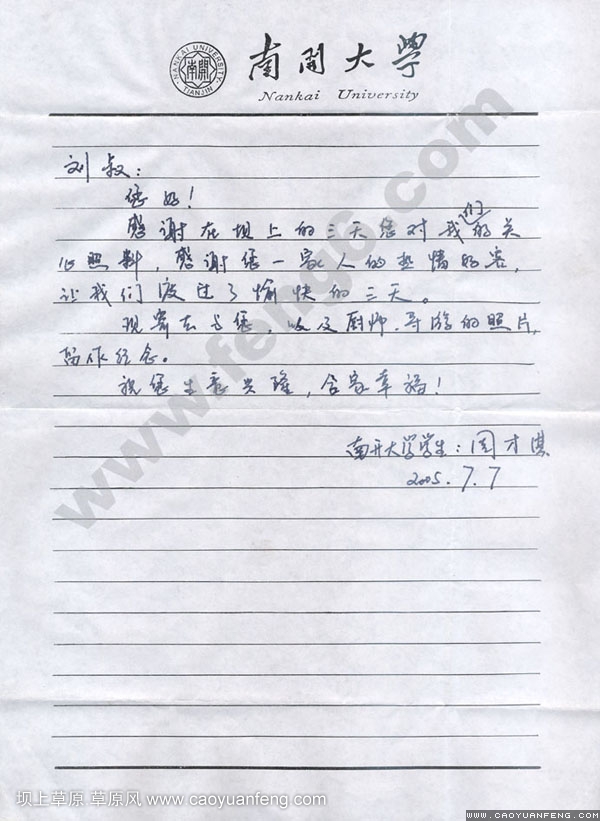 NANKAI UNIVERSITY
南開
TIANJIN
南開大學
Nankai University
刘叔:
您好!
感谢在坝上的三天您对我们的关
心照料,感谢您一家人的热情好客,
让我们度过了愉快的三天。
现寄去与您,以及厨师、导游的照片,
留作纪念。
祝您生意兴隆,合家幸福!
南开大学学生:周才淇
2005.7.7
www.feng6.com
坝上草原.草原风 www.caoyuanfeng.com
WWW.CAOYUANFENG.COM